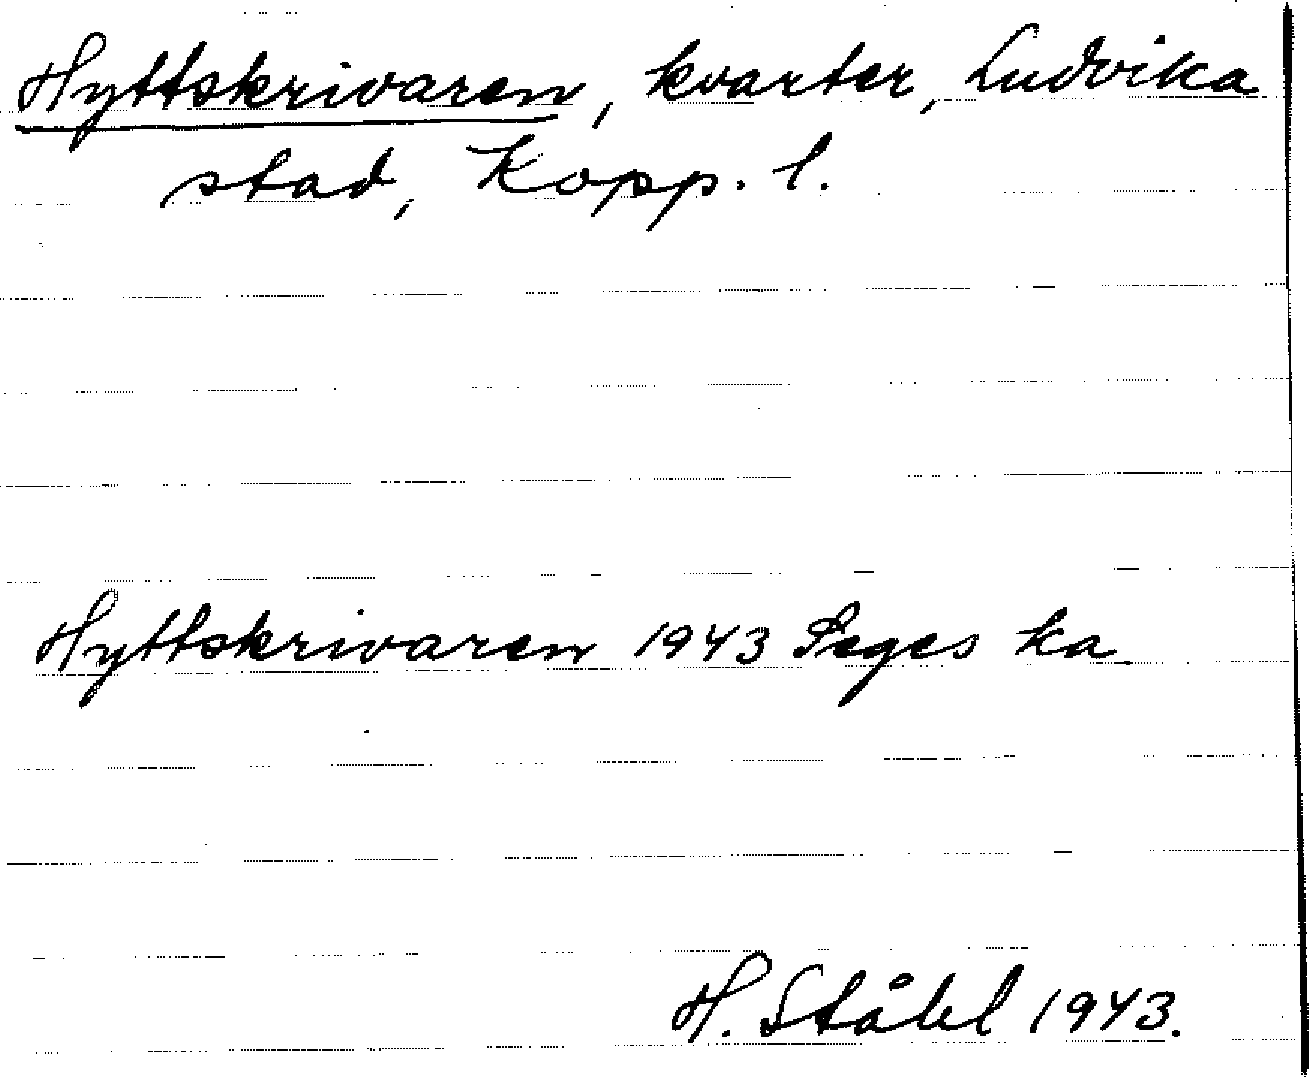 Hyttskrivaren, kvarter, Ludvika
stad, Kopp. l.
Hyttskrivaren 1943 Seges ka
H. Ståhl 1943.